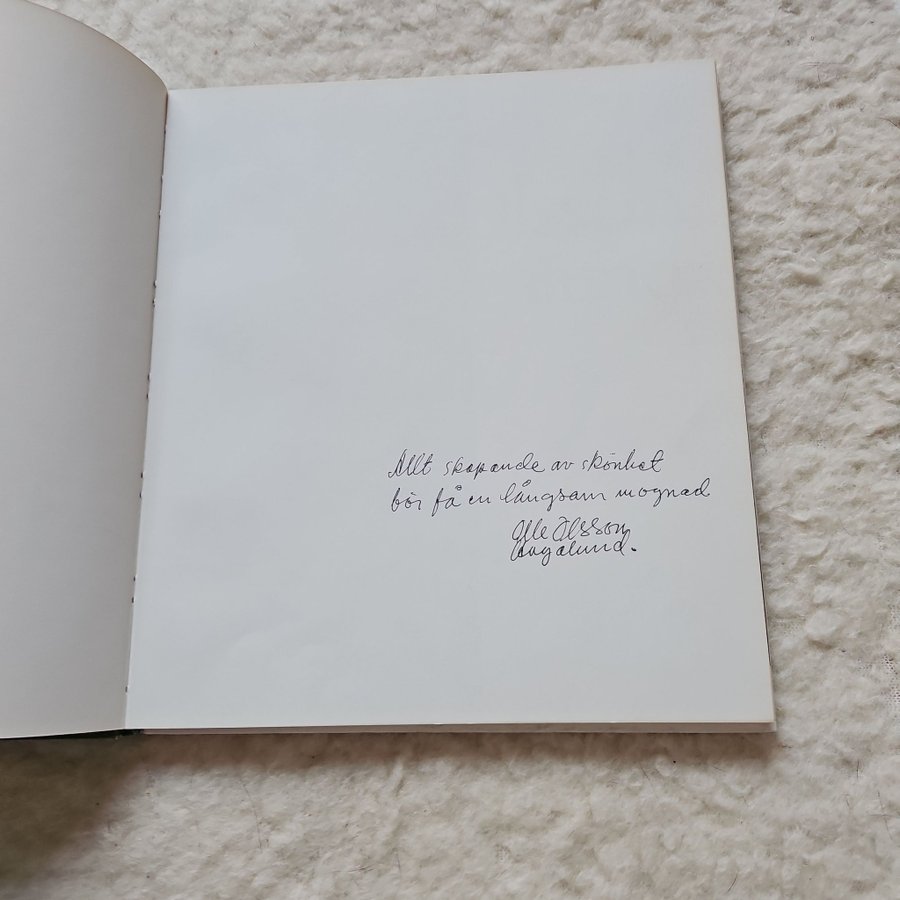 Allt skapande av skönhet
bör få en långsam mognad
Olle Olsson
Hagalund.